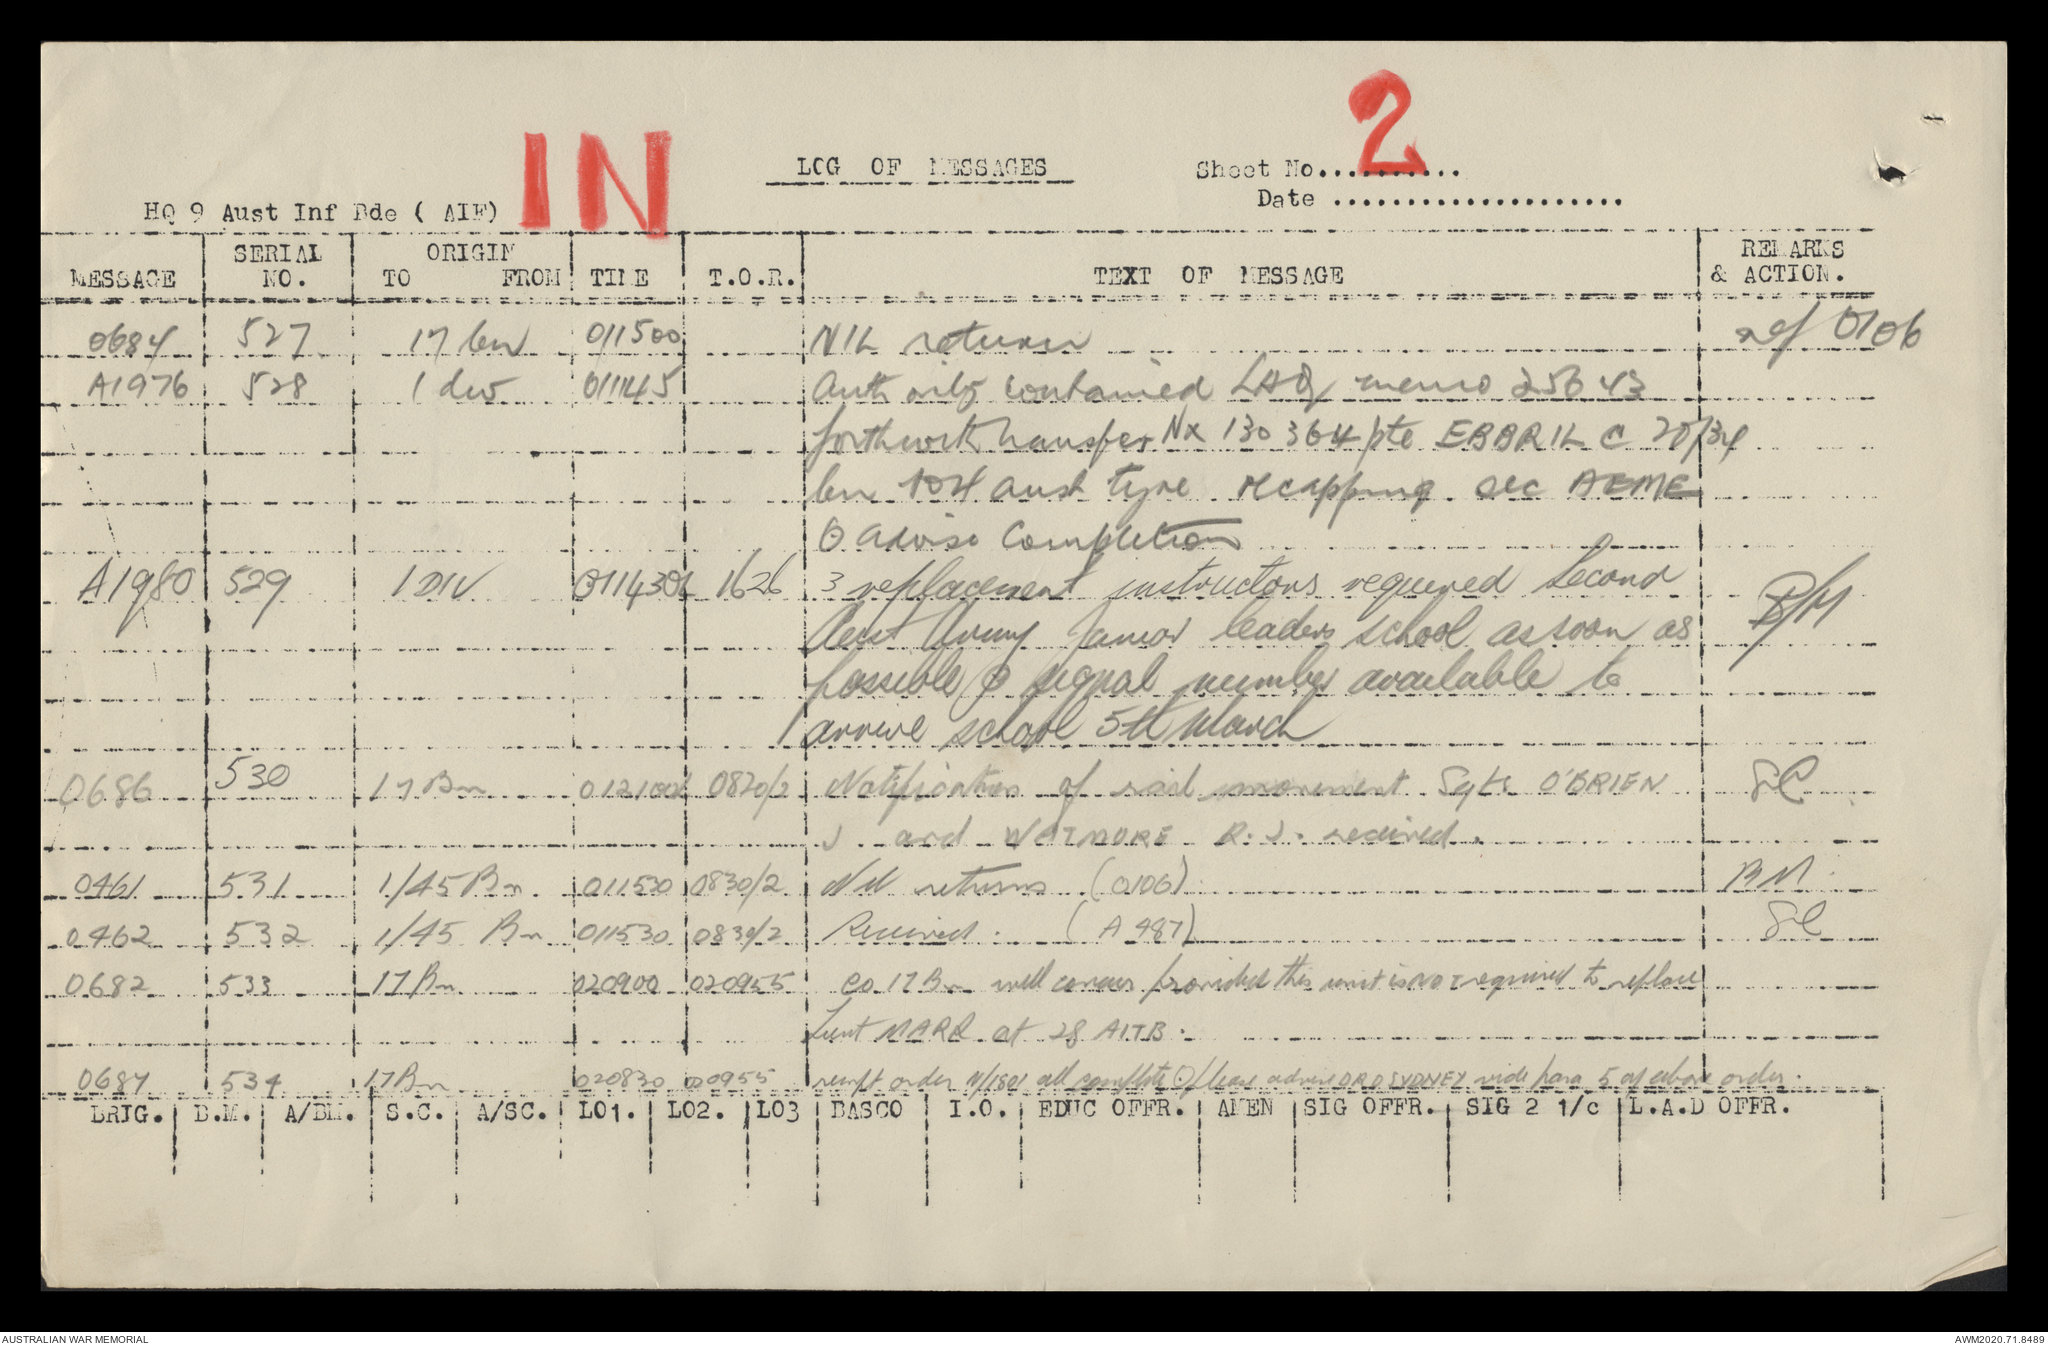 IN
2
LOG OF MESSAGES
Sheet No..........
Date ....................
HQ 9 Aust Inf Bde ( AIF)
MESSAGE SERIAL NO. ORIGIN TO FROM TIME T.O.R. TEXT OF MESSAGE REMARKS & ACTION.
0684 527 17 bn 011500 NIL return ref 0106
A1976 528 1 div 011145 Authority contained LHQ memo 25643
forthwith transfer NX 130364 pte EBBRILL C 20/34
bn 104 aust tyre recapping sec AEME
O advise completion
A1980 529 1 DIV 011430L 1626 3 replacement instructors required Second
Aust Army Junior leaders school as soon as
possible O equal number available to
arrive school 5th March
0686 530 17 Bn 012100L 0820/2 Notification of rail movement Sgts O'BRIEN SC
J. and WATMORE R.J. received.
0461 531 1/45 Bn 011530 0830/2 Nil returns (0106) BM
0462 532 1/45 Bn 011530 0830/2 Received. (A 487) SC
0682 533 17 Bn 020900 020955 CO 17 Bn will concur provided this unit is NOT required to replace
Lieut MARR at 28 AITB.
0687 534 17 Bn 020830 020955 order all complete O Please advise DRO SYDNEY vide para 5 of above order.
BRIG. B.M. A/BM. S.C. A/SC. LO1. LO2. LO3 BASCO I.O. EDUC OFFR. AMEN SIG OFFR. SIG 2 i/c L.A.D OFFR.
AUSTRALIAN WAR MEMORIAL
AWM2020.71.8489